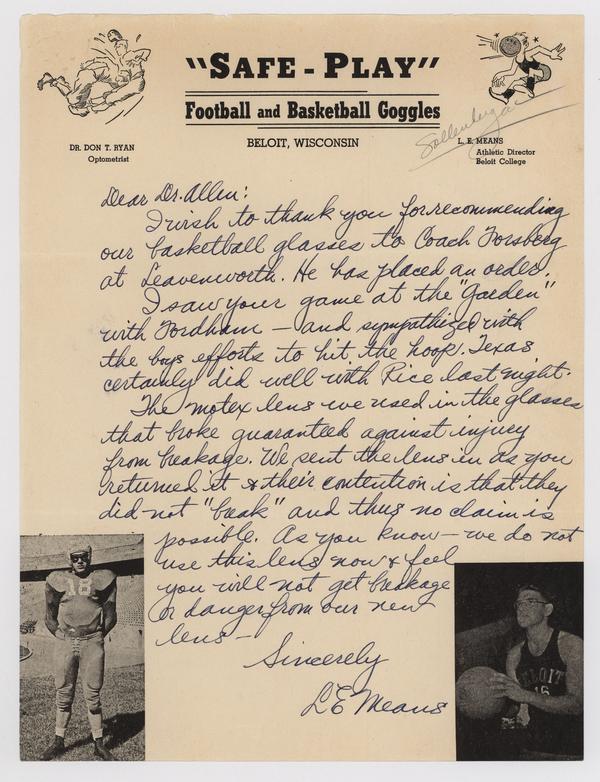 "SAFE-PLAY"
Football and Basketball Goggles
BELOIT, WISCONSIN
DR. DON T. RYAN
Optometrist
L. E. MEANS
Athletic Director
Beloit College
Dear Dr. Allen:
I wish to thank you for recommending
our basketball glasses to Coach Forsberg
at Leavenworth. He has placed an order.
I saw your game at the "Garden"
with Fordham — and sympathized with
the boys efforts to hit the hoop. Texas
certainly did well with Rice last night.
The motex lens we used in the glasses
that broke guaranteed against injury
from breakage. We sent the lens in as you
returned it & their contention is that they
did not "break" and thus no claim is
possible. As you know — we do not
use this lens now & feel
you will not get breakage
or danger from our new
lens —
Sincerely
L E Means
18
BELOIT
16